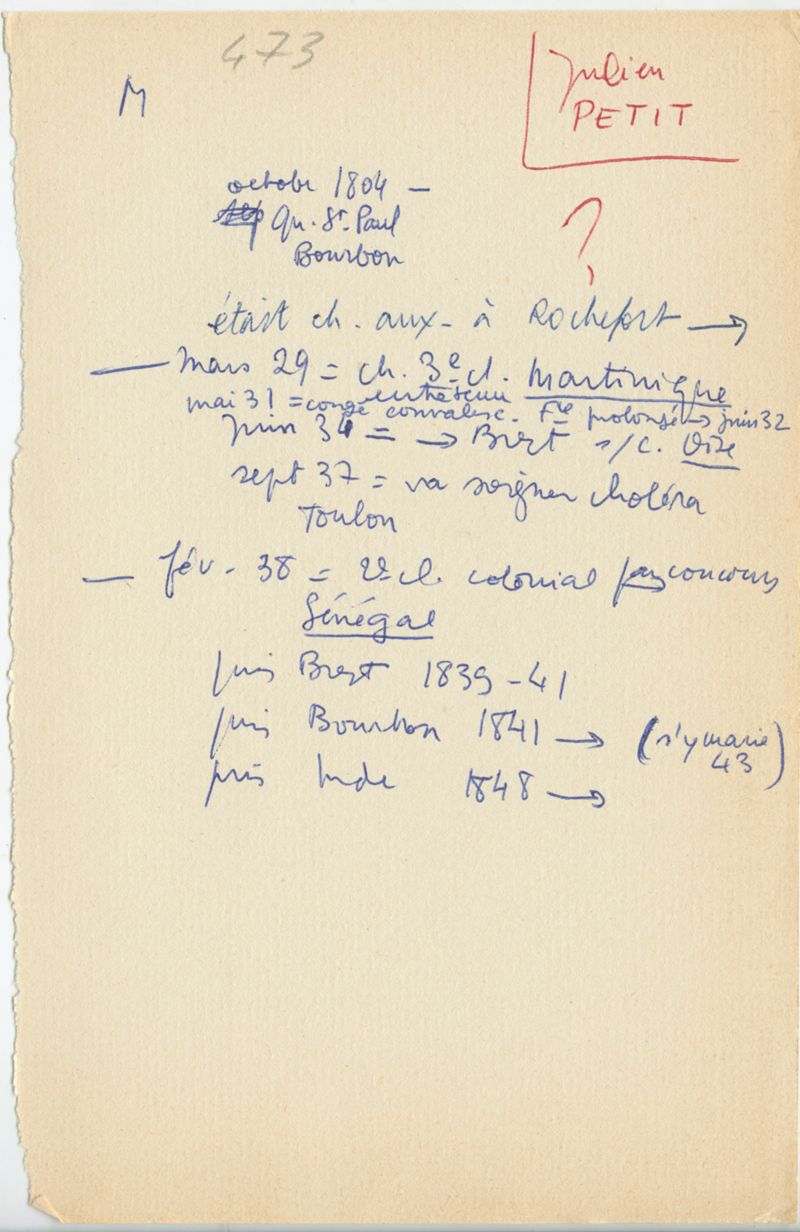 473
M
Julien
PETIT
octobre 1804 —
Qu. St. Paul
Bourbon
?
était ch. aux. à Rochefort →
— mars 29 = ch. 3e cl. Martinique
entretenu
mai 31 = congé convalesc. Fce prolongé → juin 32
juin 34 = → Brest s/c. Oise
sept 37 = va soigner choléra
Toulon
— fév. 38 = 2e cl. colonial concours
Sénégal
puis Brest 1839-41
puis Bourbon 1841 → (s'y marie
43)
puis Inde 1848 →